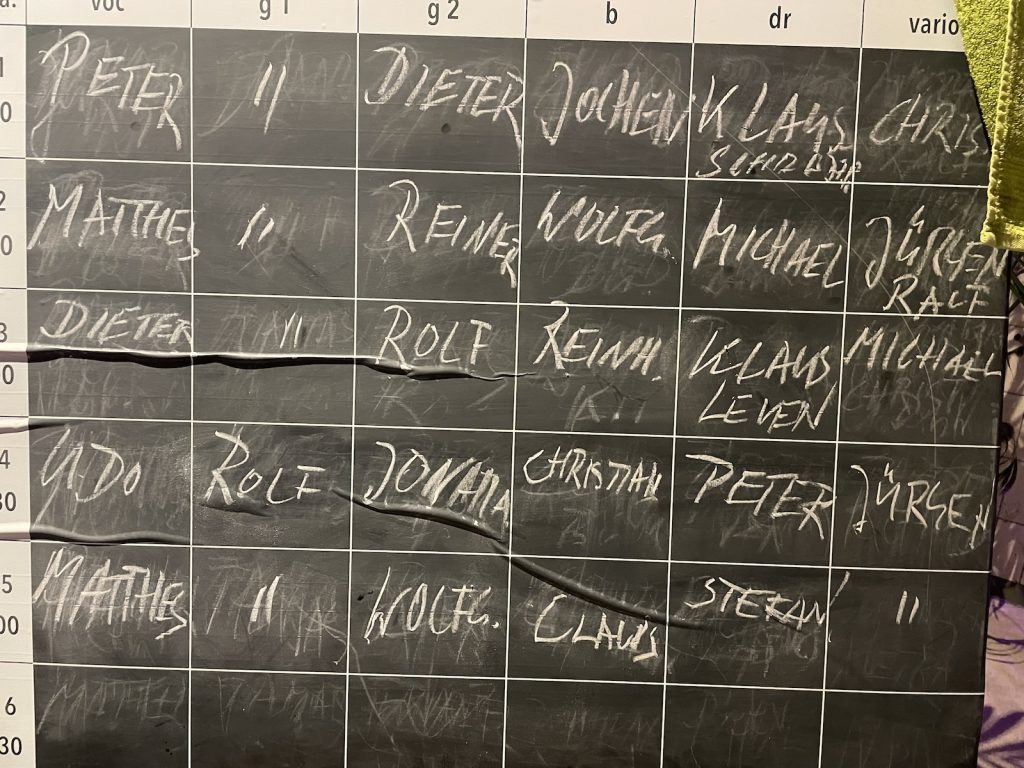 voc g 1 g 2 b dr vario
1 PETER " DIETER JOCHEN KLAUS CHRIS
0
2 MATTHES " REINER WOLFG. MICHAEL JÜRGEN
0 RALF
3 DIETER " ROLF REINH. KLAUS MICHAEL
0 LEVEN
4 UDO ROLF CHRISTIAN PETER JÜRGEN
30
5 MATTHES " WOLFG. CLAUS STEFAN "
00
6
30